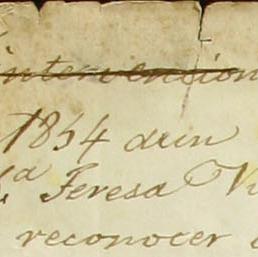 intervension
1854 aun
Teresa
reconocer